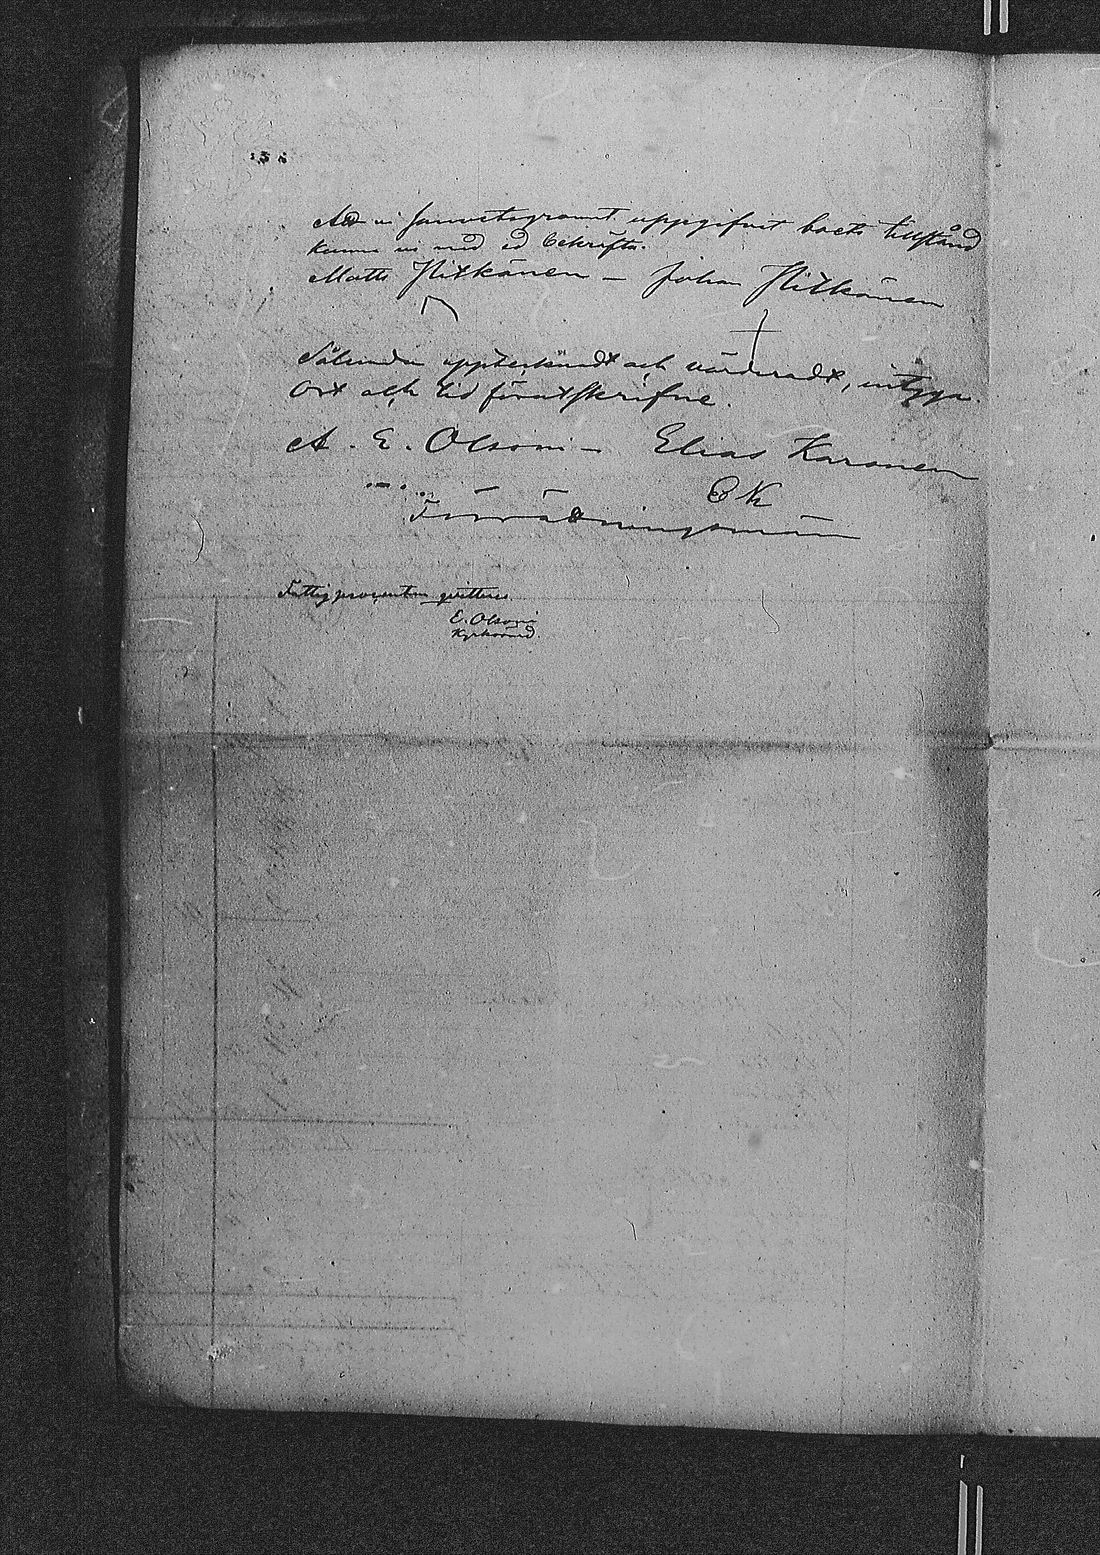 Att vi samvetsgrannt uppgifvit boets tillstånd
kunna vi med ed bekräfta.
Matts Hitkänen – Johan Hitkänen
Sålunda upptecknadt och värderadt, intyga.
Ort och tid förutskrifne.
A. E. Olsoni – Elias Karonen
EK
Förrättningsmän
Fattigprocenten qvitteras
E. Olsoni
Kyrkovärd.